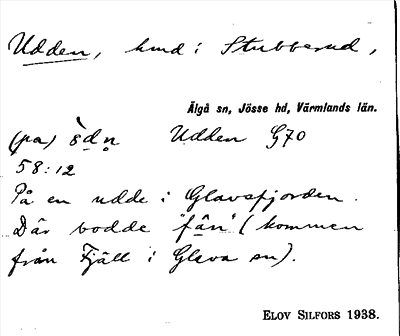 Udden, hmd i Stubberud,
Älgå sn, Jösse hd, Värmlands län.
(på) Udden G70
58:12
På en udde i Glavsfjorden.
Där bodde "fän" (kommen
från Fjäll i Glava sn).
ELOV SILFORS 1938.